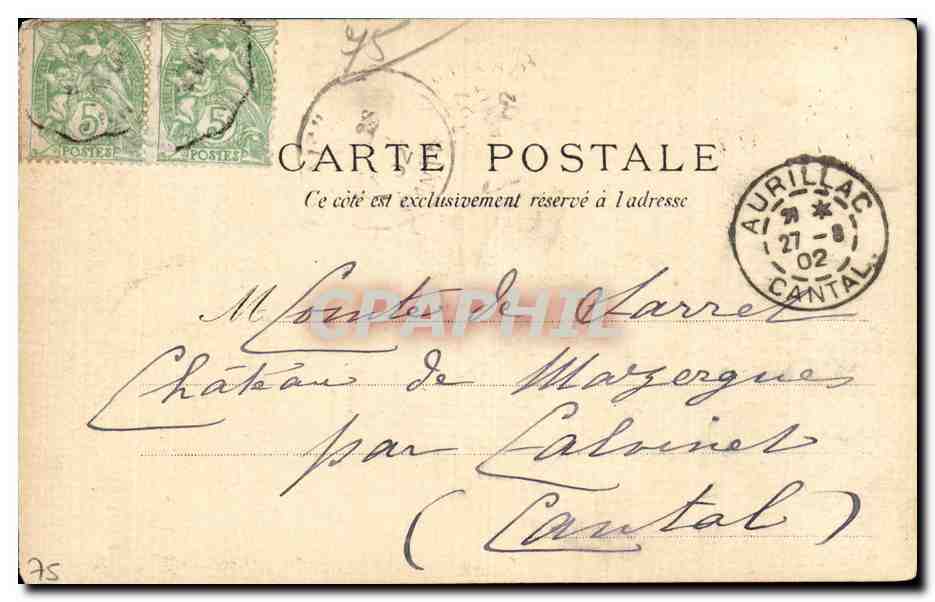 75
5c 5c
POSTES POSTES
CARTE POSTALE
Ce côté est exclusivement réservé à l'adresse
AURILLAC
27 - 8
02
CANTAL
M Comte de Sarret
CPAPHIL
Château de Mazergues
par Calvinet
(Cantal)
75